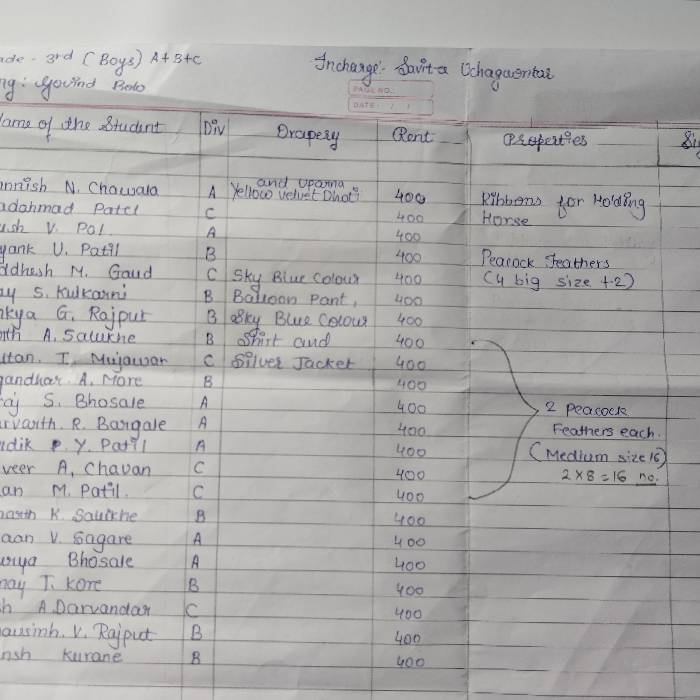 ade - 3rd (Boys) A+B+C
Incharge:- Savita Uchagaonkar
ng: Govind Bolo
PAGE NO.:
DATE: / /
ame of the Student Div Drapery Rent Properties
nnish N. Chawala A Yellow Velvet Dhoti and Uparna 400 Ribbons for Holding
adahmad Patel C 400 Horse
ush V. Pol A 400
yank U. Patil B 400 Peacock Feathers
ddhesh M. Gaud C Sky Blue Colour 400 (4 big size +2)
ay S. Kulkarni B Balloon Pant, 400
nkya G. Rajput B Sky Blue Colour 400
rth A. Salukhe B Shirt and 400
utan. I. Mujawar C Silver Jacket 400
gandhar. A. More B 400
raj S. Bhosale A 400 2 Peacock
rvarth. R. Bargale A 400 Feathers each.
rdik P. Y. Patil A 400 (Medium size 16)
veer A. Chavan C 400 2 x 8 = 16 no.
an M. Patil. C 400
harth K. Salukhe B 400
aan V. Sagare A 400
urya Bhosale A 400
may T. Kore B 400
sh A Darvandar C 400
haisinh. V. Rajput B 400
ansh Kurane B 400